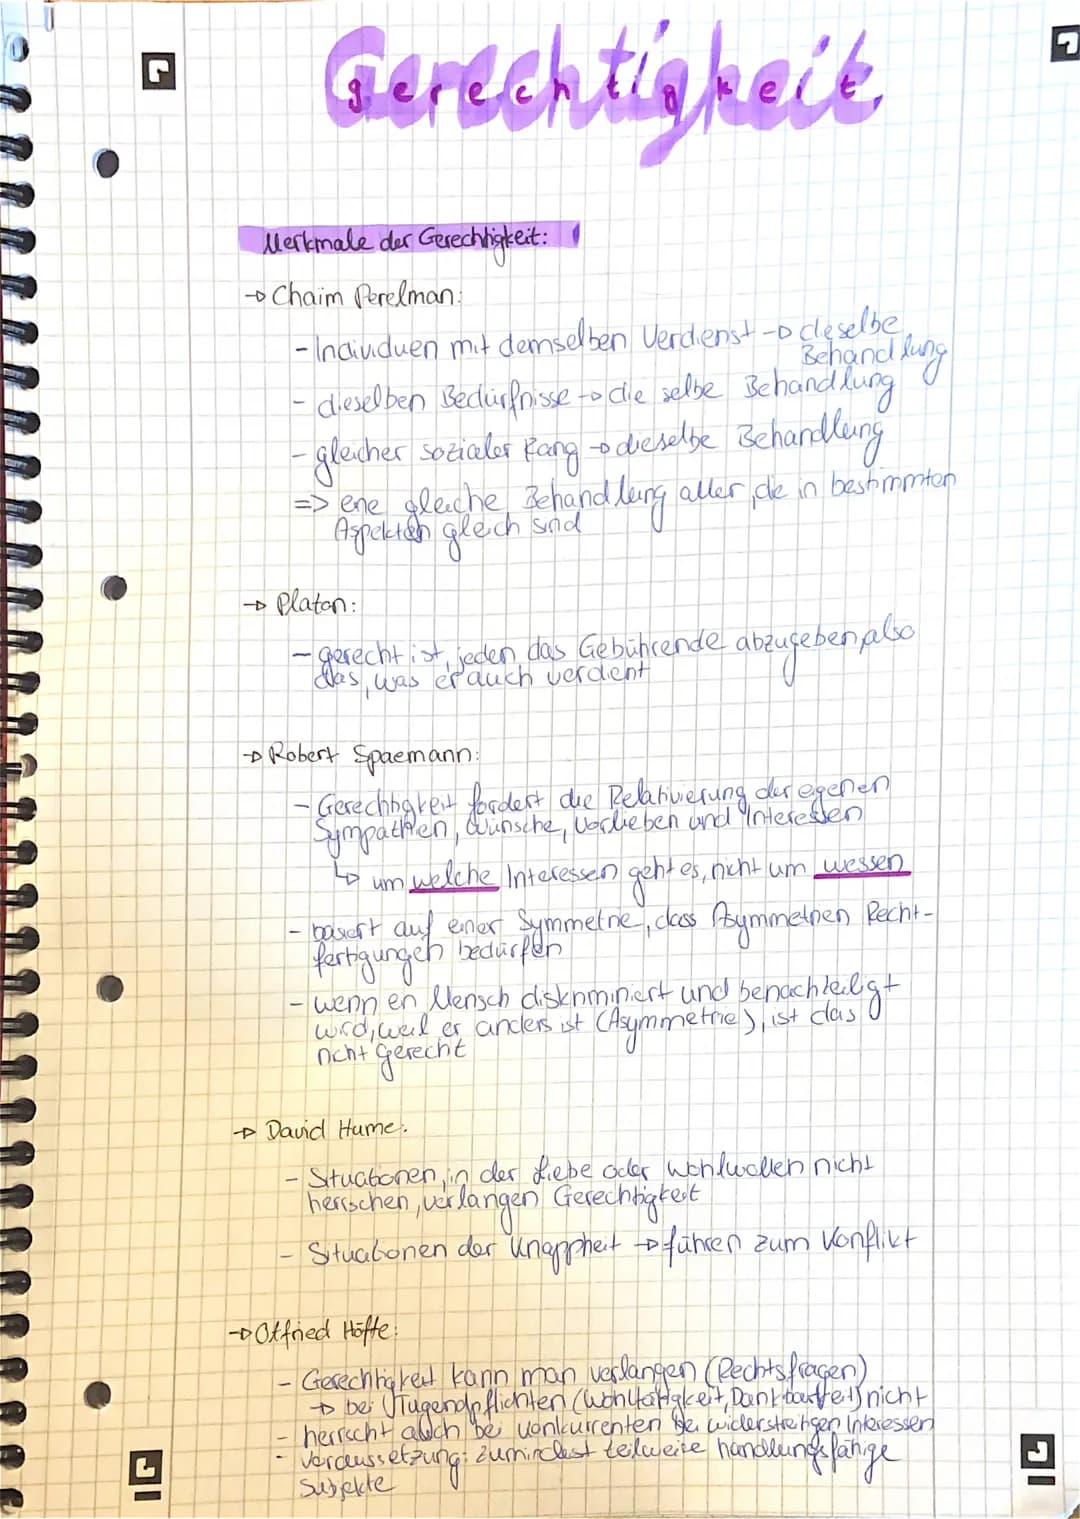 Gerechtigkeit
Merkmale der Gerechtigkeit:
→ Chaim Perelman:
- Individuen mit demselben Verdienst → dieselbe
Behandlung
- dieselben Bedürfnisse → die selbe Behandlung
- gleicher sozialer Rang → dieselbe Behandlung
=> eine gleiche Behandlung aller, die in bestimmten
Aspekten gleich sind
→ Platon:
- gerecht ist, jeden das Gebührende abzugeben, also
das, was er auch verdient
→ Robert Spaemann:
- Gerechtigkeit fordert die Relativierung der eigenen
Sympathien, Wünsche, Vorlieben und Interessen
↳ um welche Interessen geht es, nicht um wessen
- basiert auf einer Symmetrie, dass Asymmetrien Recht-
fertigungen bedürfen
- wenn ein Mensch diskriminiert und benachteiligt
wird, weil er anders ist (Asymmetrie), ist das
nicht gerecht
→ David Hume:
- Situationen, in der Liebe oder Wohlwollen nicht
herrschen, verlangen Gerechtigkeit
- Situationen der Knappheit → führen zum Konflikt
→ Otfried Höffe:
- Gerechtigkeit kann man verlangen (Rechtsfragen)
→ bei Tugendpflichten (Wohltätigkeit, Dankbarkeit) nicht
- herrscht auch bei Konkurrenten bei widerstreitigen Interessen
- Voraussetzung: zumindest teilweise handlungsfähige
Subjekte